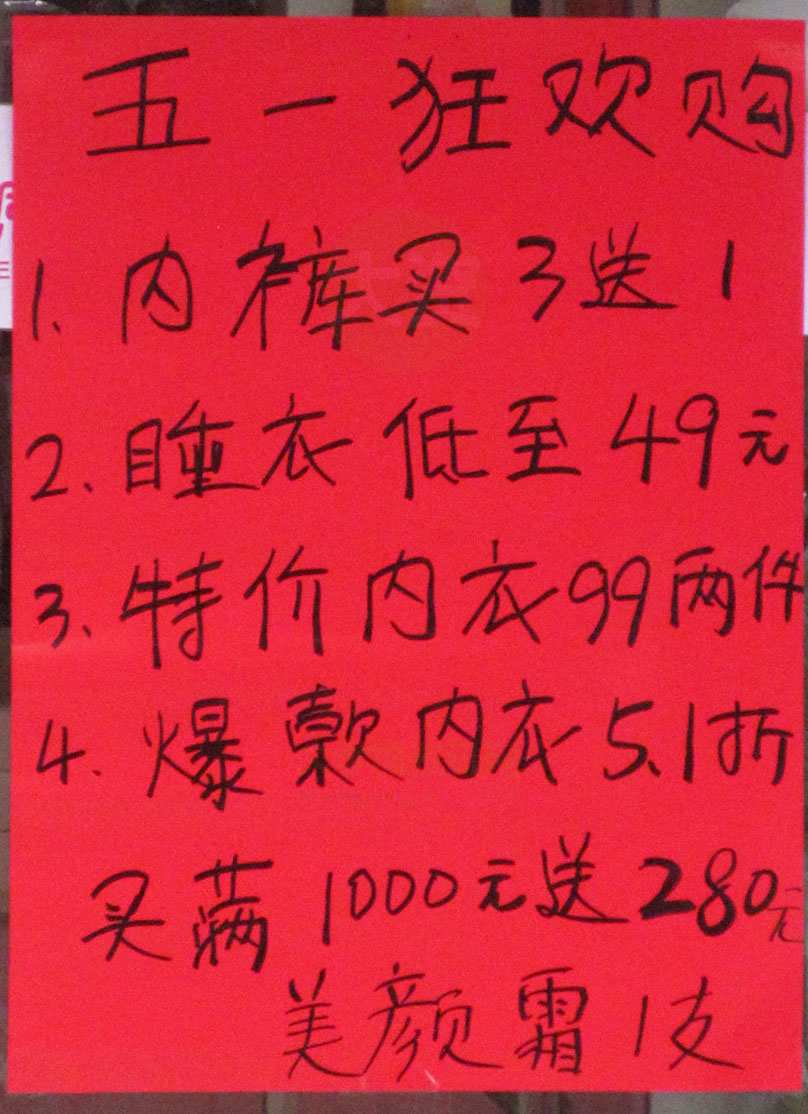 五一狂欢购
1. 内裤买3送1
2. 睡衣低至49元
3. 特价内衣99两件
4. 爆款内衣5.1折
买满1000元送280元
美颜霜1支